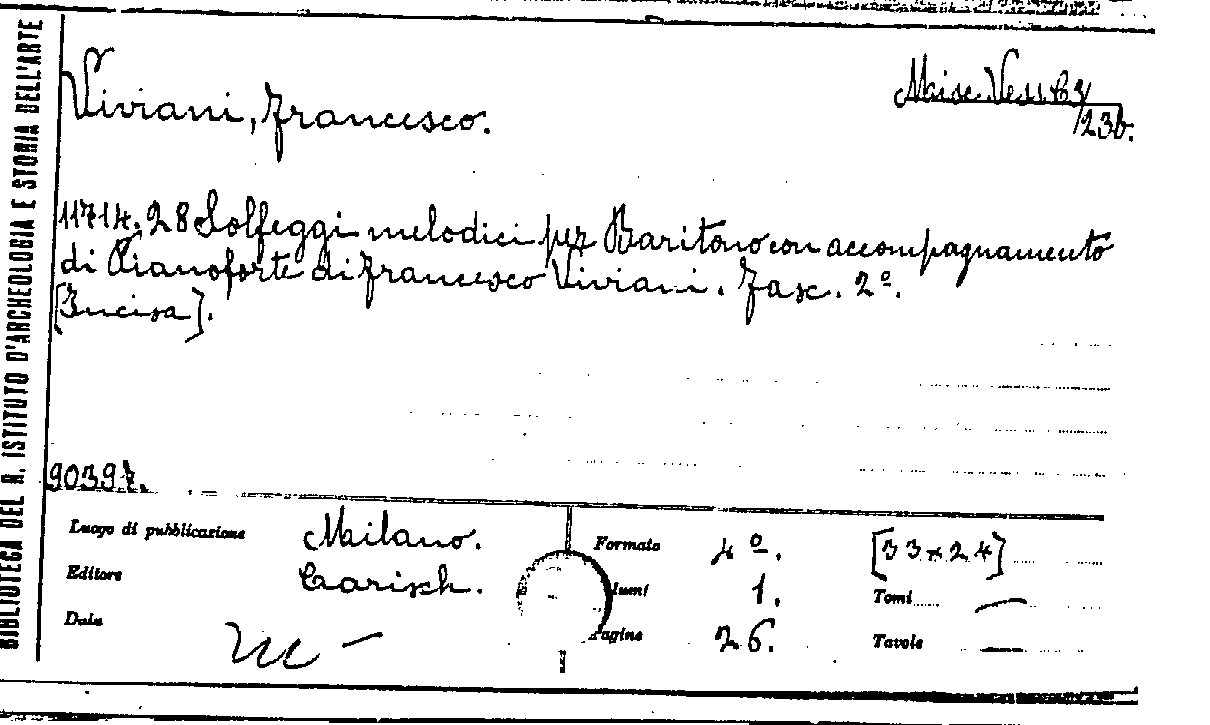 BIBLIOTECA DEL R. ISTITUTO D'ARCHEOLOGIA E STORIA DELL'ARTE
Viviani, Francesco.
Misc. Vess. C3/23b.
11714. 28 Solfeggi melodici per Baritono con accompagnamento
di Pianoforte di Francesco Viviani. Fasc. 2º.
[Incisa].
90397.
Luogo di pubblicazione Milano. Formato 4º. [33x24]
Editore Carisch. lumi 1. Tomi —
Data — Pagine 26. Tavole —